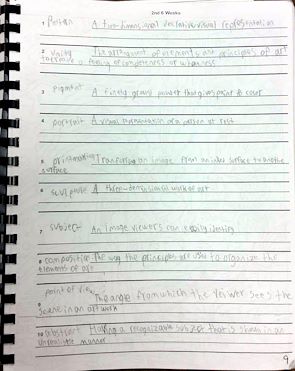 2nd 6 Weeks
1 pattern A two-dimensional decorative visual representation
2 unity The arrangement of elements and principles of art
to create a feeling of completeness or wholeness
3 pigment A finely ground powder that gives paint its color
4 portrait A visual representation of a person at rest
5 printmaking Transferring an image from an inked surface to another
surface
6 sculpture A three-dimensional work of art
7 subject An image viewers can easily identify
8 composition The way the principles are used to organize the
elements of art
9 point of view The angle from which the veiwer sees the
scene in an artwork
10 abstract Having a recognizable subject that is shown in an
unrealistic manner
9